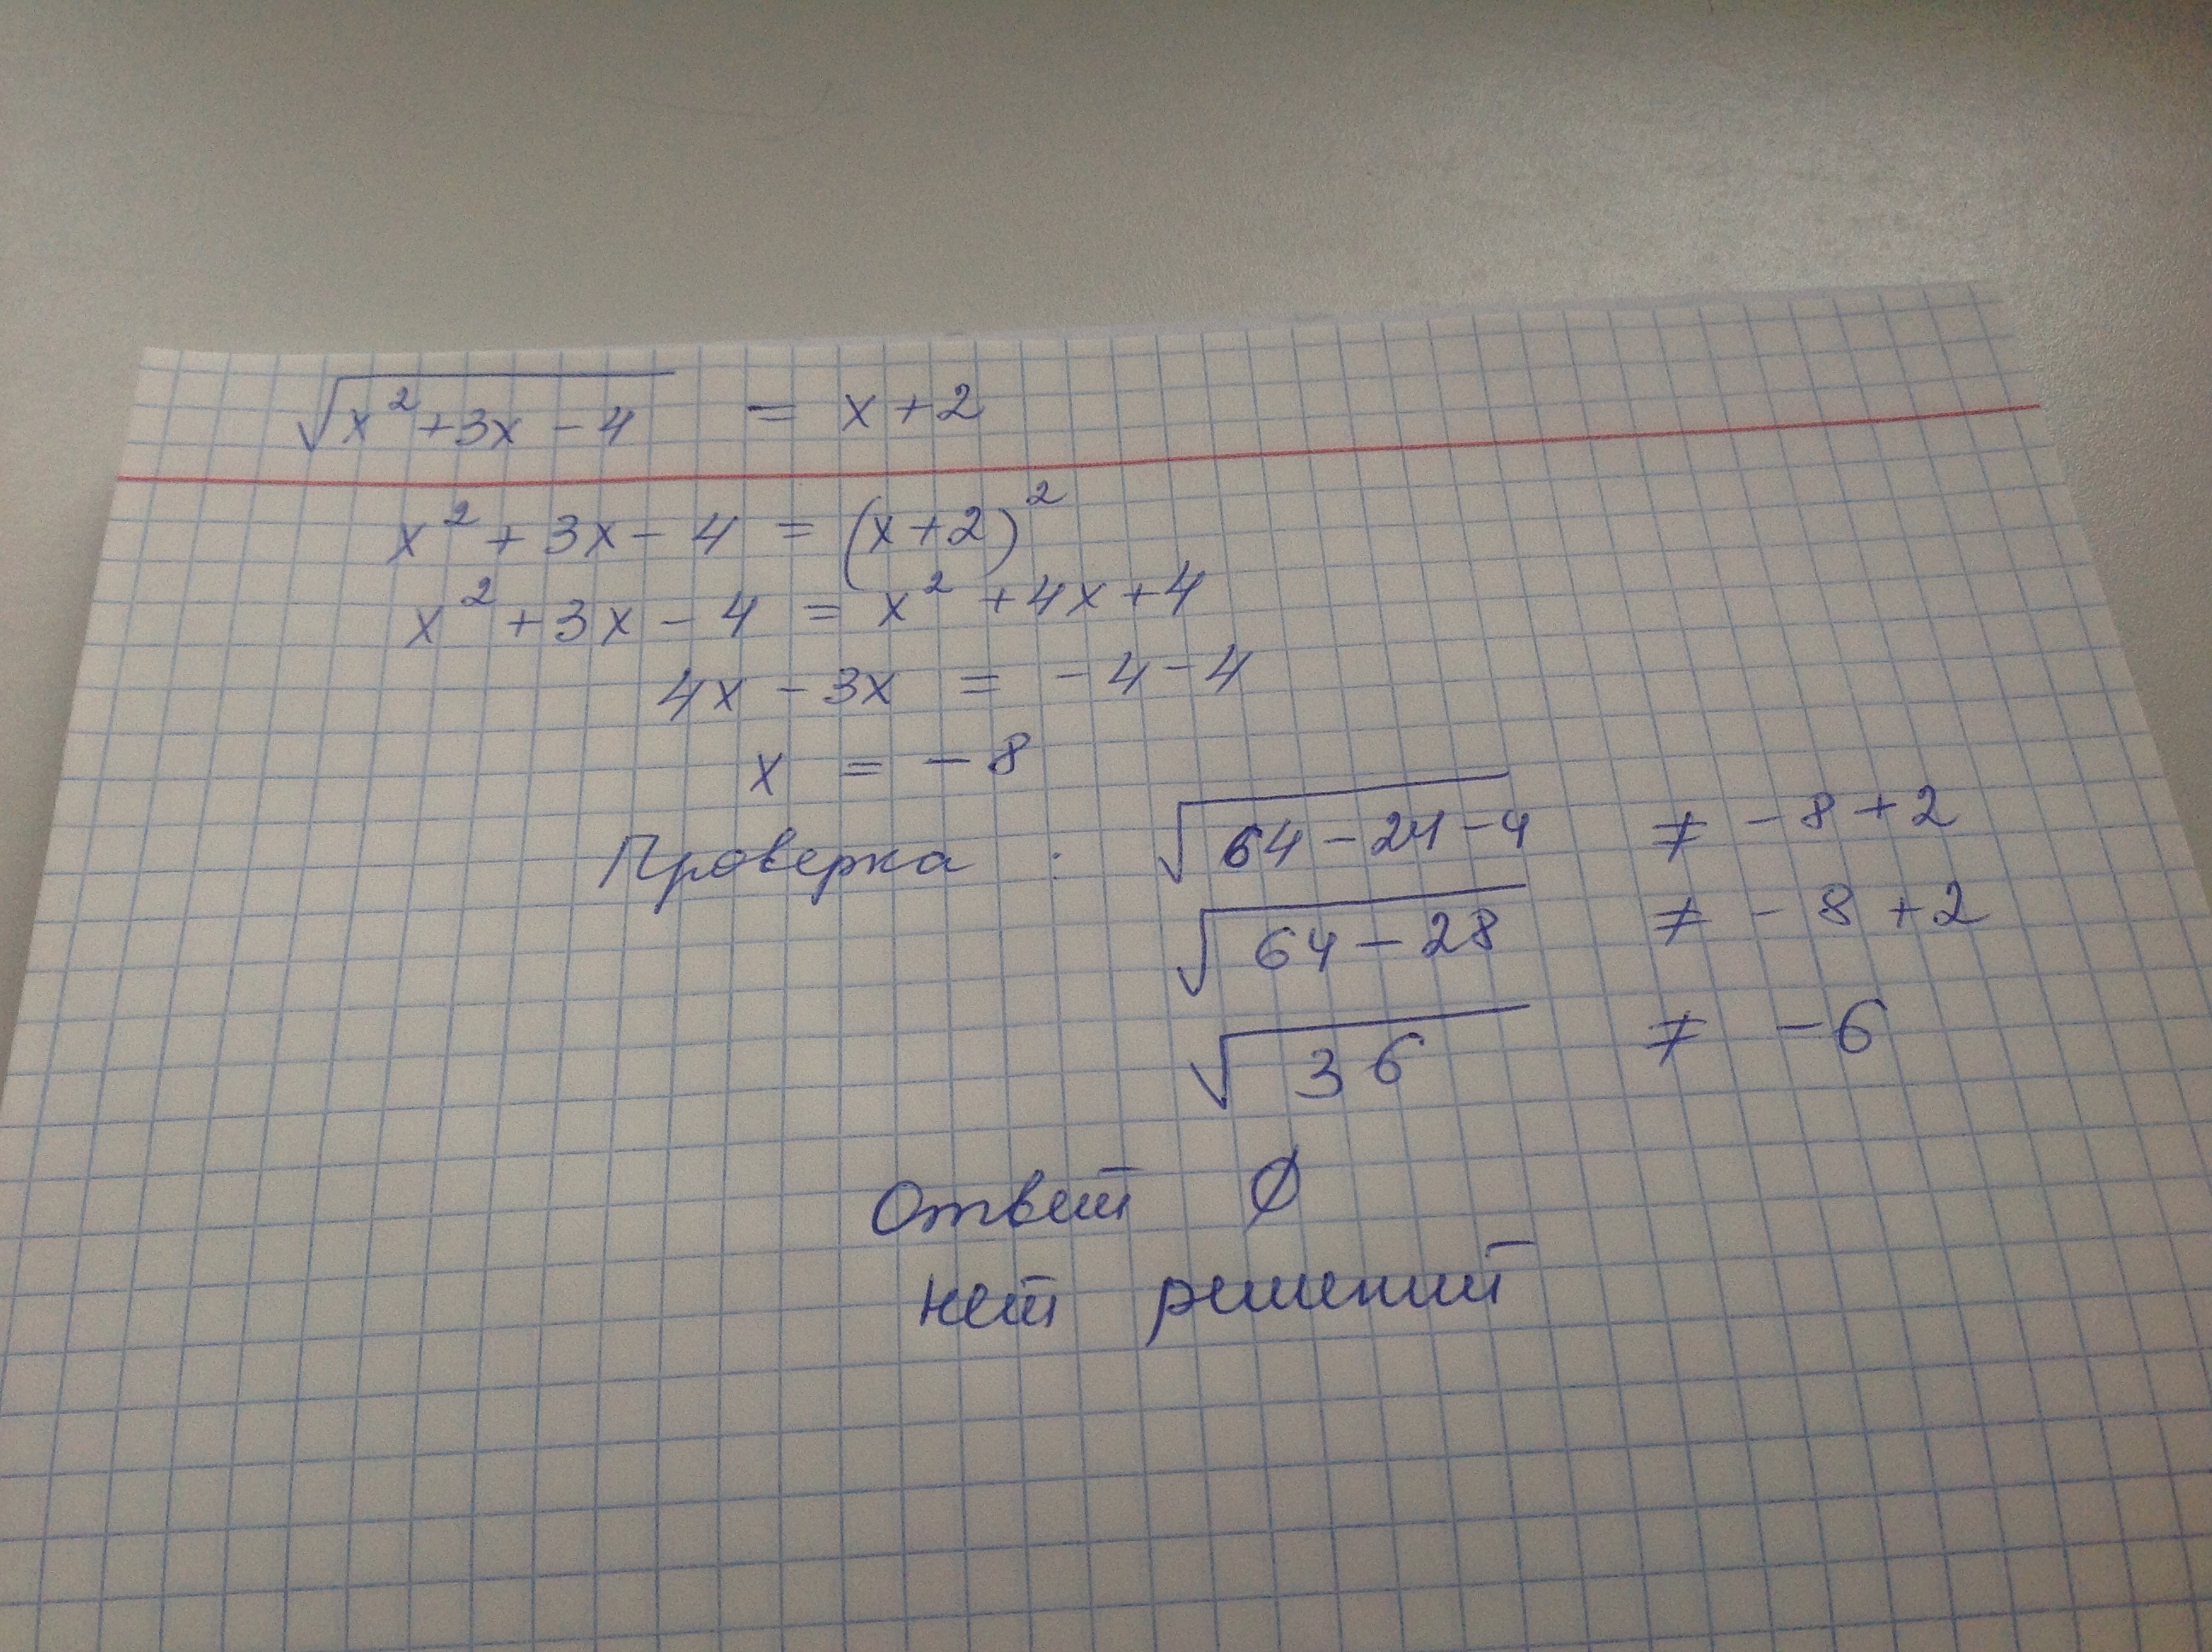 √(x² + 3x - 4) = x + 2
x² + 3x - 4 = (x + 2)²
x² + 3x - 4 = x² + 4x + 4
4x - 3x = -4 - 4
x = -8
Проверка : √(64 - 24 - 4) ≠ -8 + 2
√(64 - 28) ≠ -8 + 2
√36 ≠ -6
Ответ ∅
нет решений